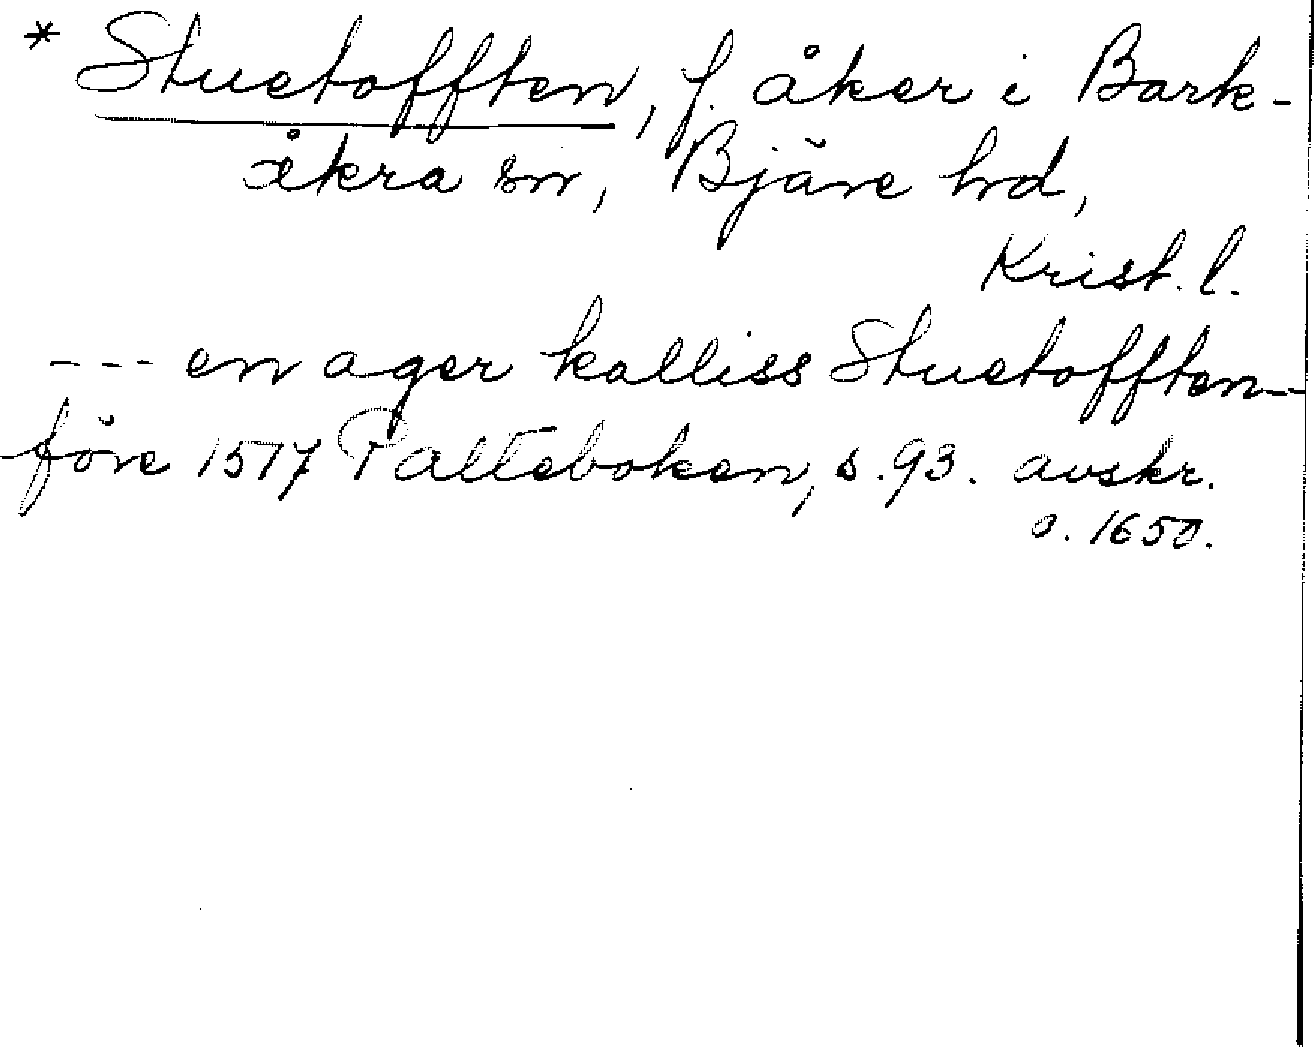 * Stuetofften, f. åker i Bark-
åkra sn, Bjäre hd,
Krist. l.
--- en ager kalliss Stuetofften--
före 1517 Palteboken, s. 93. avskr.
o. 1650.